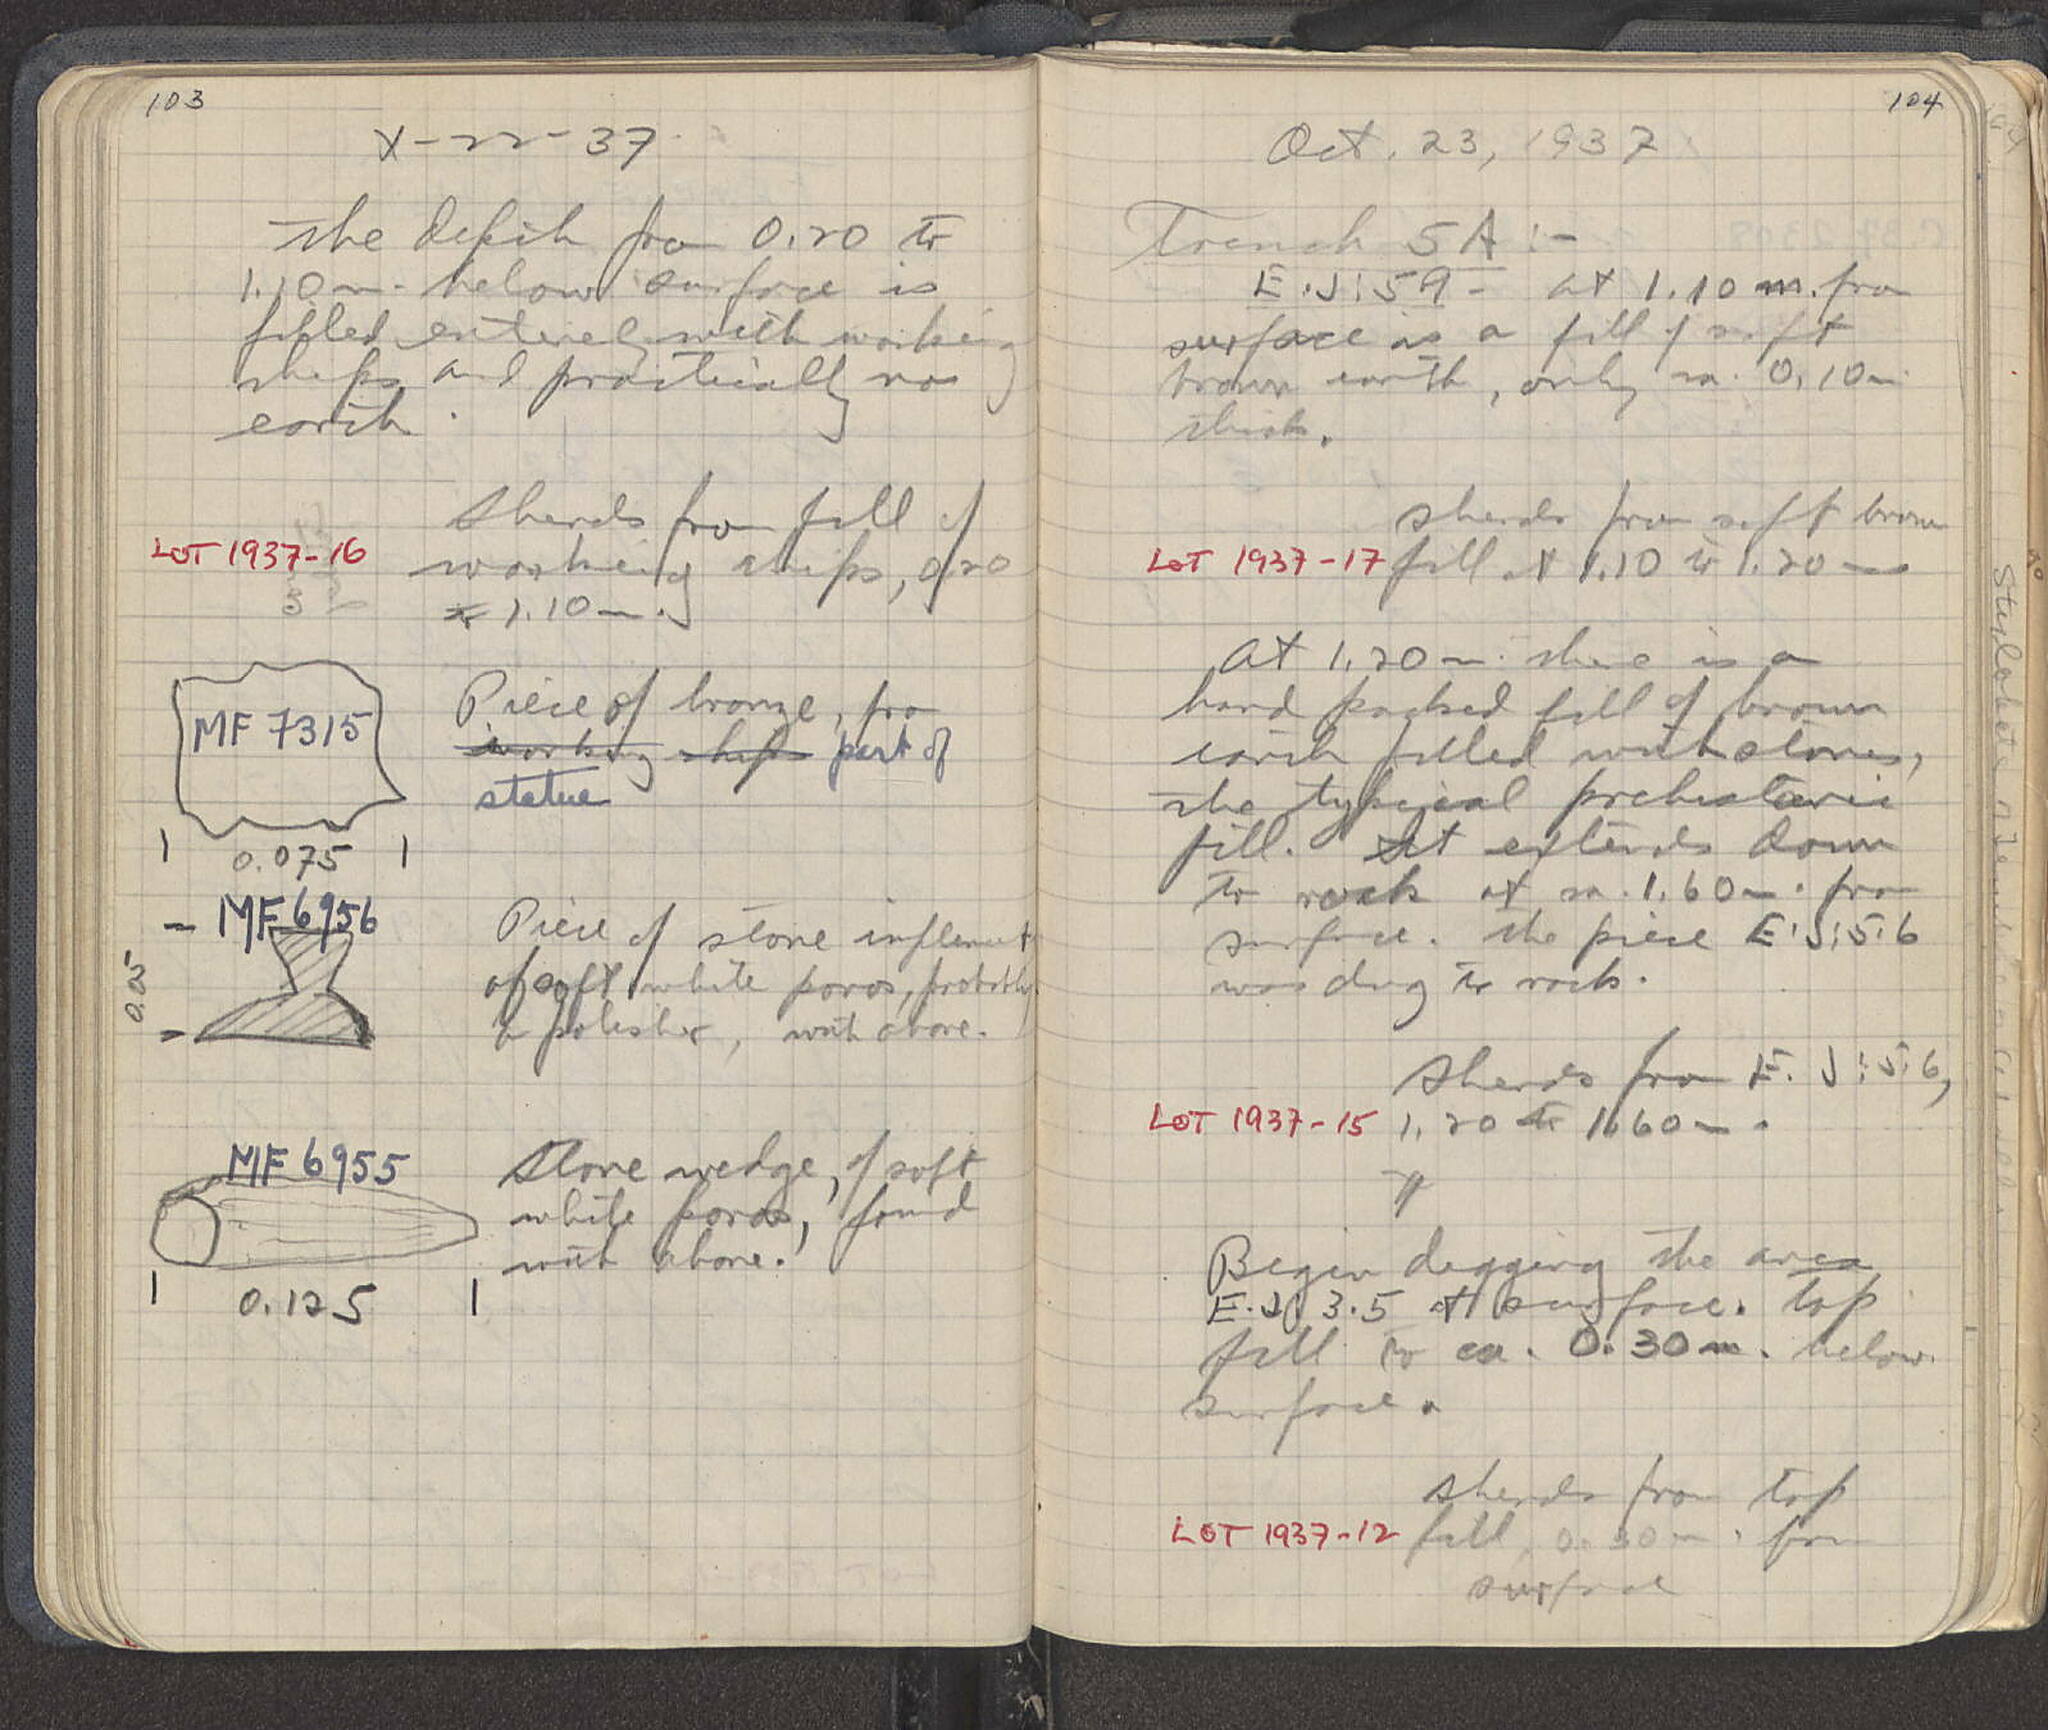 103
X-22-37
The depth from 0.20 to
1.10 m. below surface is
filled entirely with working
chips and practically no
earth.
Sherds from fill of
LOT 1937-16 working chips, 0.20
to 1.10 m.
MF 7315
Piece of bronze, from
working chips part of
statue
0.075
MF 6956
0.05
Piece of stone implement
of soft white poros, probably
a polisher, with above.
MF 6955
Stone wedge, of soft
white poros, found
with above.
0.125
104
Oct. 23, 1937
Trench 5A :-
E.J:59 - At 1.10 m. from
surface is a fill of soft
brown earth, only ca. 0.10 m.
thick.
sherds from soft brown
LOT 1937-17 fill at 1.10 to 1.20 m
At 1.20 m. there is a
hard packed fill of brown
earth filled with stones,
the typical prehistoric
fill. It extends down
to rock at ca. 1.60 m. from
surface. The piece E:J:5:6
was dug to rock.
Sherds from E.J:5:6,
LOT 1937-15 1.20 to 1.60 m.
Begin digging the area
E.J. 3.5 at surface. top
fill to ca. 0.30 m. below
surface.
sherds from top
LOT 1937-12 fill, 0.30 m. from
surface